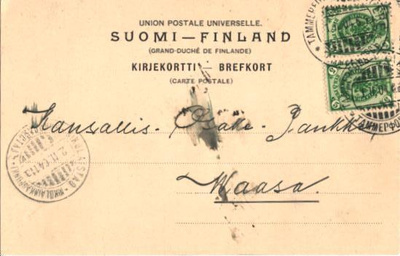 UNION POSTALE UNIVERSELLE.
SUOMI—FINLAND
(GRAND-DUCHÉ DE FINLANDE)
KIRJEKORTTI — BREFKORT
(CARTE POSTALE)
Kansallis-Osake-Pankki
Waasa